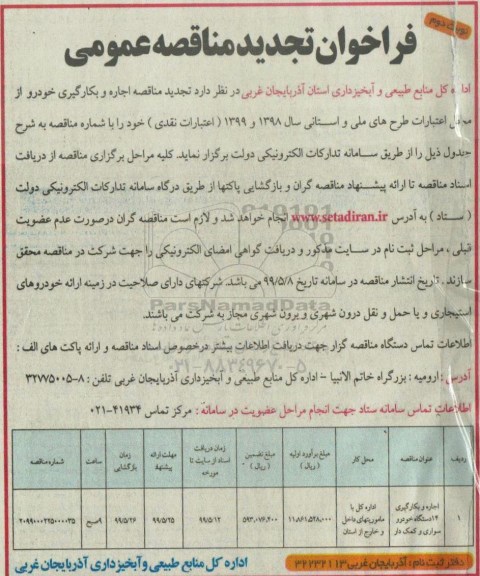 نوبت دوم
فراخوان تجدید مناقصه عمومی
اداره کل منابع طبیعی و آبخیزداری استان آذربایجان غربی در نظر دارد تجدید مناقصه اجاره و بکارگیری خودرو از
محل اعتبارات طرح های ملی و استانی سال ۱۳۹۸ و ۱۳۹۹ ( اعتبارات نقدی ) خود را با شماره مناقصه به شرح
جدول ذیل را از طریق سامانه تدارکات الکترونیکی دولت برگزار نماید. کلیه مراحل برگزاری مناقصه از دریافت
اسناد مناقصه تا ارائه پیشنهاد مناقصه گران و بازگشایی پاکتها از طریق درگاه سامانه تدارکات الکترونیکی دولت
( ستاد ) به آدرس www.setadiran.ir انجام خواهد شد و لازم است مناقصه گران درصورت عدم عضویت
قبلی ، مراحل ثبت نام در سایت مذکور و دریافت گواهی امضای الکترونیکی را جهت شرکت در مناقصه محقق
سازند . تاریخ انتشار مناقصه در سامانه تاریخ ۹۹/۵/۸ می باشد. شرکتهای دارای صلاحیت در زمینه ارائه خودروهای
استیجاری و یا حمل و نقل درون شهری و برون شهری مجاز به شرکت می باشند.
ParsNamadData
اطلاعات تماس دستگاه مناقصه گزار جهت دریافت اطلاعات بیشتر درخصوص اسناد مناقصه و ارائه پاکت های الف :
۰۲۱-۸۸۳۴۹۶۷۰-۵
آدرس : ارومیه : بزرگراه خاتم الانبیا - اداره کل منابع طبیعی و آبخیزداری آذربایجان غربی تلفن : ۸-۳۲۷۷۵۰۰۵
اطلاعات تماس سامانه ستاد جهت انجام مراحل عضویت در سامانه : مرکز تماس ۴۱۹۳۴-۰۲۱
ردیف عنوان مناقصه محل کار مبلغ برآورد اولیه ( ریال ) مبلغ تضمین ( ریال ) زمان دریافت اسناد از سایت تا مورخه مهلت ارائه پیشنهاد زمان بازگشایی ساعت شماره مناقصه
۱ اجاره و بکارگیری ۱۴دستگاه خودرو سواری و کمک دار اداره کل با ماموریتهای داخل و خارج از استان ۱۱،۸۶۱،۵۲۸،۰۰۰ ۵۹۳،۰۷۶،۴۰۰ ۹۹/۵/۱۲ ۹۹/۵/۲۵ ۹۹/۵/۲۶ ۹صبح ۲۰۹۹۰۰۰۲۲۵۰۰۰۰۳۵
دفتر ثبت نام : آذربایجان غربی ۳۲۲۳۲۱۱۳
اداره کل منابع طبیعی و آبخیزداری آذربایجان غربی